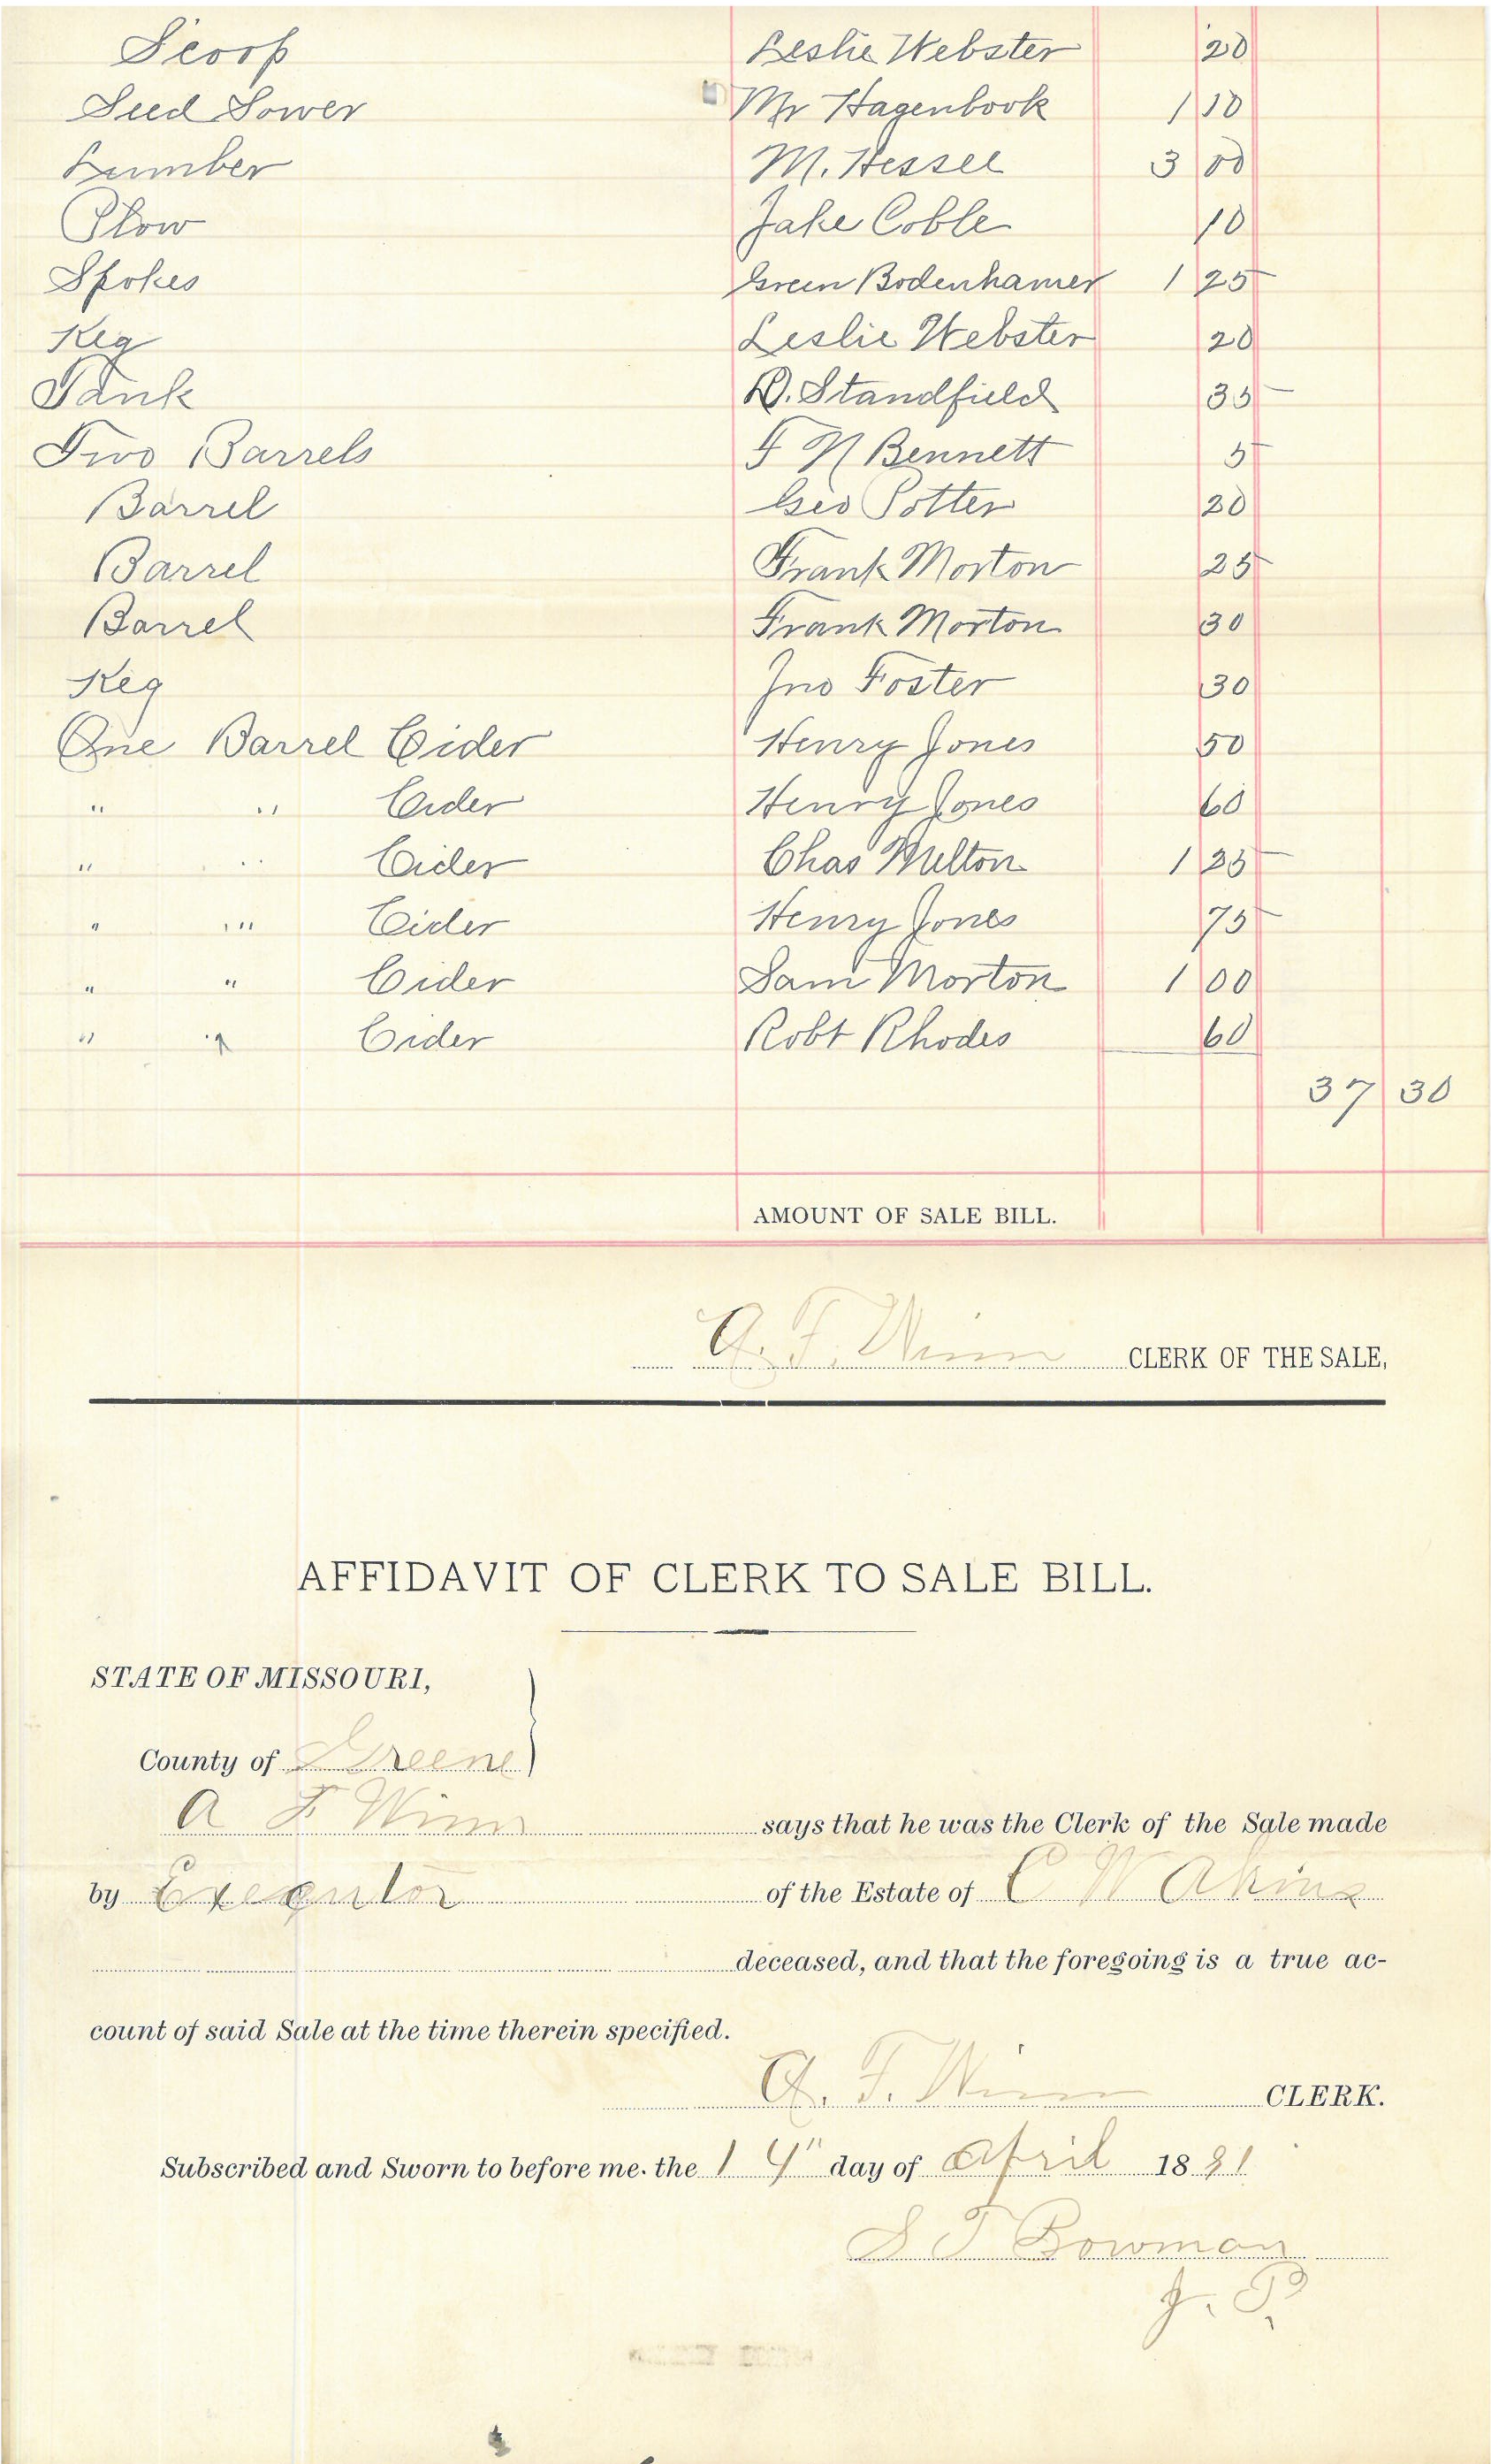 Scoop Leslie Webster 20
Seed Sower Mr Hagenbook 1 10
Lumber M. Hessee 3 00
Plow Jake Coble 10
Spokes Green Bodenhamer 1 25
Keg Leslie Webster 20
Tank D. Standfield 35
Two Barrels F N Bennett 5
Barrel Geo Potter 20
Barrel Frank Morton 25
Barrel Frank Morton 30
Keg Jno Foster 30
One Barrel Cider Henry Jones 50
" " Cider Henry Jones 60
" " Cider Chas Multon 1 25
" " Cider Henry Jones 75
" " Cider Sam Morton 1 00
" " Cider Robt Rhodes 60
37 30
AMOUNT OF SALE BILL.
A. F. Winn CLERK OF THE SALE,
AFFIDAVIT OF CLERK TO SALE BILL.
STATE OF MISSOURI,
County of Greene
A F Winn says that he was the Clerk of the Sale made
by Executor of the Estate of C W Akins
deceased, and that the foregoing is a true ac-
count of said Sale at the time therein specified.
A. F. Winn CLERK.
Subscribed and Sworn to before me. the 14" day of April 1891
S T Bowman
J. P.